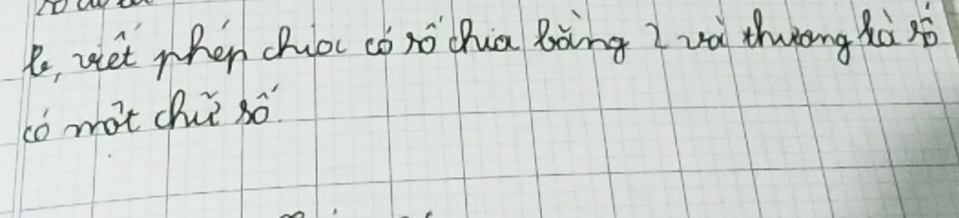 b, viết phép chia có số chia bằng 2 và thương là số
có một chữ số.